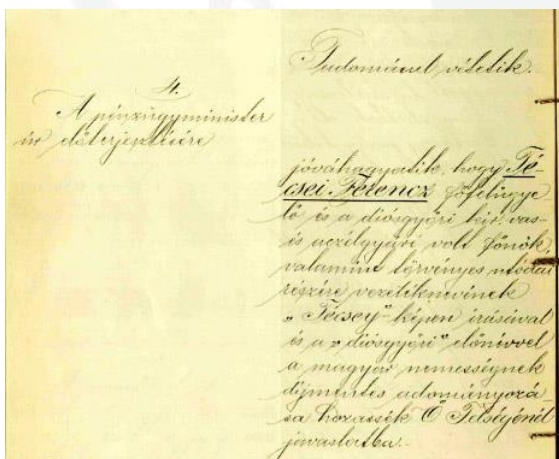 Tudomásul vétetik.
4.
A pénzügyminister
úr előterjesztésére
jóváhagyatik, hogy Té-
csei Ferencz főfelügye
lő és a diósgyőri kir. vas-
és aczélgyári volt főnök,
valamint törvényes utódai
részére vezetéknevének
„Técsey" képen irásával
és a „diósgyőri" előnévvel
a magyar nemességnek
díjmentes adományozá-
sa hozassék Ő Felségénél
javaslatba.